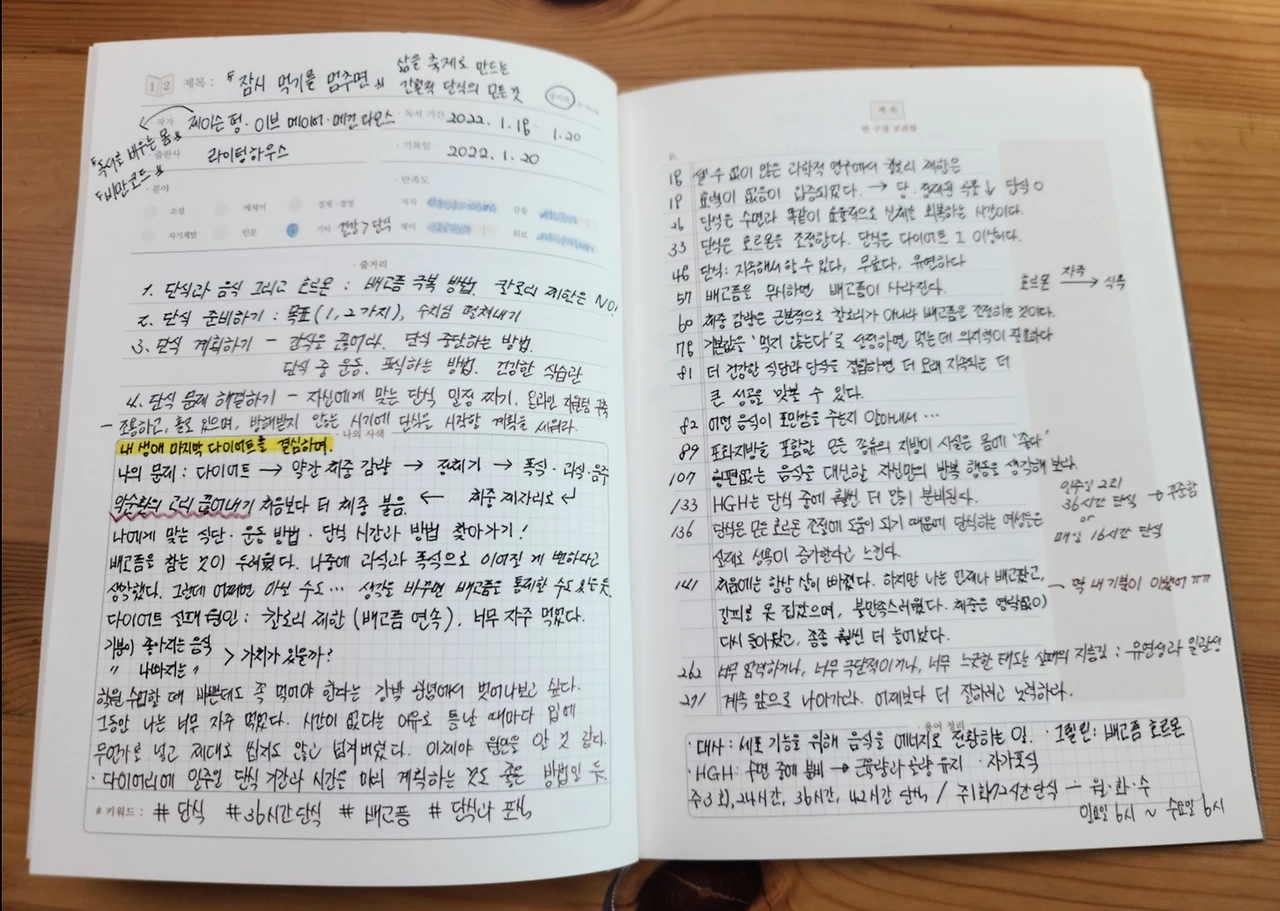 12 제목 : 『잠시 먹기를 멈추면』 삶을 축제로 만드는
간헐적 단식의 모든 것
종이책 E-book
작가 제이슨 펑·이브 메이어·메건 라모스 · 독서 기간 2022. 1. 18 - 1. 20
『독소를 비우는 몸』
『비만코드』
· 출판사 라이팅하우스 · 기록일 2022. 1. 20
· 분야 · 만족도
소설 에세이 경제·경영 지식 감동
자기계발 인문 기타 건강 > 단식 재미 위로
· 줄거리
1. 단식과 음식 그리고 호르몬 : 배고픔 극복 방법. 칼로리 제한은 NO!
2. 단식 준비하기 : 목표(1, 2가지), 수치심 떨쳐내기
3. 단식 계획하기 - 간식을 끊어라. 단식 중단하는 방법.
단식 중 운동. 포식하는 방법. 건강한 식습관
4. 단식 문제 해결하기 - 자신에게 맞는 단식 일정 짜기. 온라인 지원팀 구축
- 조용하고, 홀로 있으며, 방해받지 않는 시기에 단식을 시작할 계획을 세워라.
내 생애 마지막 다이어트를 결심하며. · 나의 사색
나의 문제 : 다이어트 → 약간 체중 감량 → 정체기 → 폭식·과식·음주
악순환의 고리 끊어내기 처음보다 더 체중 불음. ← 체중 제자리로 ↵
나에게 맞는 식단·운동 방법·단식 시간과 방법 찾아가기!
배고픔을 참는 것이 두려웠다. 나중에 과식과 폭식으로 이어질 게 뻔하다고
생각했다. 그런데 어쩌면 아닐 수도… 생각을 바꾸면 배고픔을 통제할 수도 있는 듯.
다이어트 실패 원인 : 칼로리 제한 (배고픔 연속), 너무 자주 먹었다.
기분이 좋아지는 음식
〃 나빠지는 〃 > 가치가 있을까?
학원 수업할 때 바쁜데도 꼭 먹어야 한다는 강박 관념에서 벗어나보고 싶다.
그동안 나는 너무 자주 먹었다. 시간이 없다는 이유로 틈날 때마다 입에
무언가를 넣고 제대로 씹지도 않고 넘겨버렸다. 이제야 원인을 안 것 같다.
· 다이어리에 일주일 단식 기간과 시간을 미리 계획하는 것도 좋은 방법일 듯.
# 키워드 : # 단식 #36시간 단식 # 배고픔 # 단식과 포식
책 속
한 구절 보관함
P.
18 셀 수 없이 많은 과학적 연구에서 칼로리 제한은
19 효력이 없음이 입증되었다. → 당·정제된 곡물↓ 단식○
26 단식은 수면과 똑같이 효율적으로 신체를 회복하는 시간이다.
33 단식은 호르몬을 조절한다. 단식은 다이어트 그 이상이다.
46 단식: 지속해서 할 수 있다, 무료다, 유연하다
57 배고픔을 무시하면 배고픔이 사라진다. 호르몬 자극→ 식욕
60 체중 감량은 근본적으로 칼로리가 아니라 배고픔을 조절하는 것이다.
78 기본값을 '먹지 않는다'로 설정하면, 먹는 데 의지력이 필요하다
81 더 건강한 식단과 단식을 결합하면 더 오래 지속되는 더
큰 성공을 맛볼 수 있다.
82 어떤 음식이 포만감을 주는지 알아내서 …
89 포화지방을 포함한 모든 종류의 지방이 사실은 몸에 '좋다'
107 형편없는 음식을 대신할 자신만의 반복 행동을 생각해 보다.
133 HGH는 단식 중에 훨씬 더 많이 분비된다.
일주일 2회
36시간 단식 → 꾸준함
or
매일 16시간 단식
136 단식은 모든 호르몬 조절에 도움이 되기 때문에 단식하는 여성들은
실제로 성욕이 증가한다고 느낀다.
141 처음에는 항상 살이 빠졌다. 하지만 나는 언제나 배고팠고, - 딱 내 기분이 이랬어 ㅠㅠ
갈피를 못 잡았으며, 불만족스러웠다. 체중은 영락없이
다시 돌아왔고, 종종 훨씬 더 늘어났다.
262 너무 엄격하거나, 너무 극단적이거나, 너무 느긋한 태도는 실패의 지름길 : 유연성과 일관성
271 계속 앞으로 나아가라. 어제보다 더 잘하려고 노력하라.
· 용어 정리
· 대사 : 세포 기능을 위해 음식을 에너지로 전환하는 일. · 그렐린 : 배고픔 호르몬
· HGH : 수면 중에 분비 → 근육량과 골량 유지 · 자가포식
주3회, 24시간, 36시간, 42시간 단식 / 주1회 72시간 단식 - 월·화·수
일요일 6시 ~ 수요일 6시